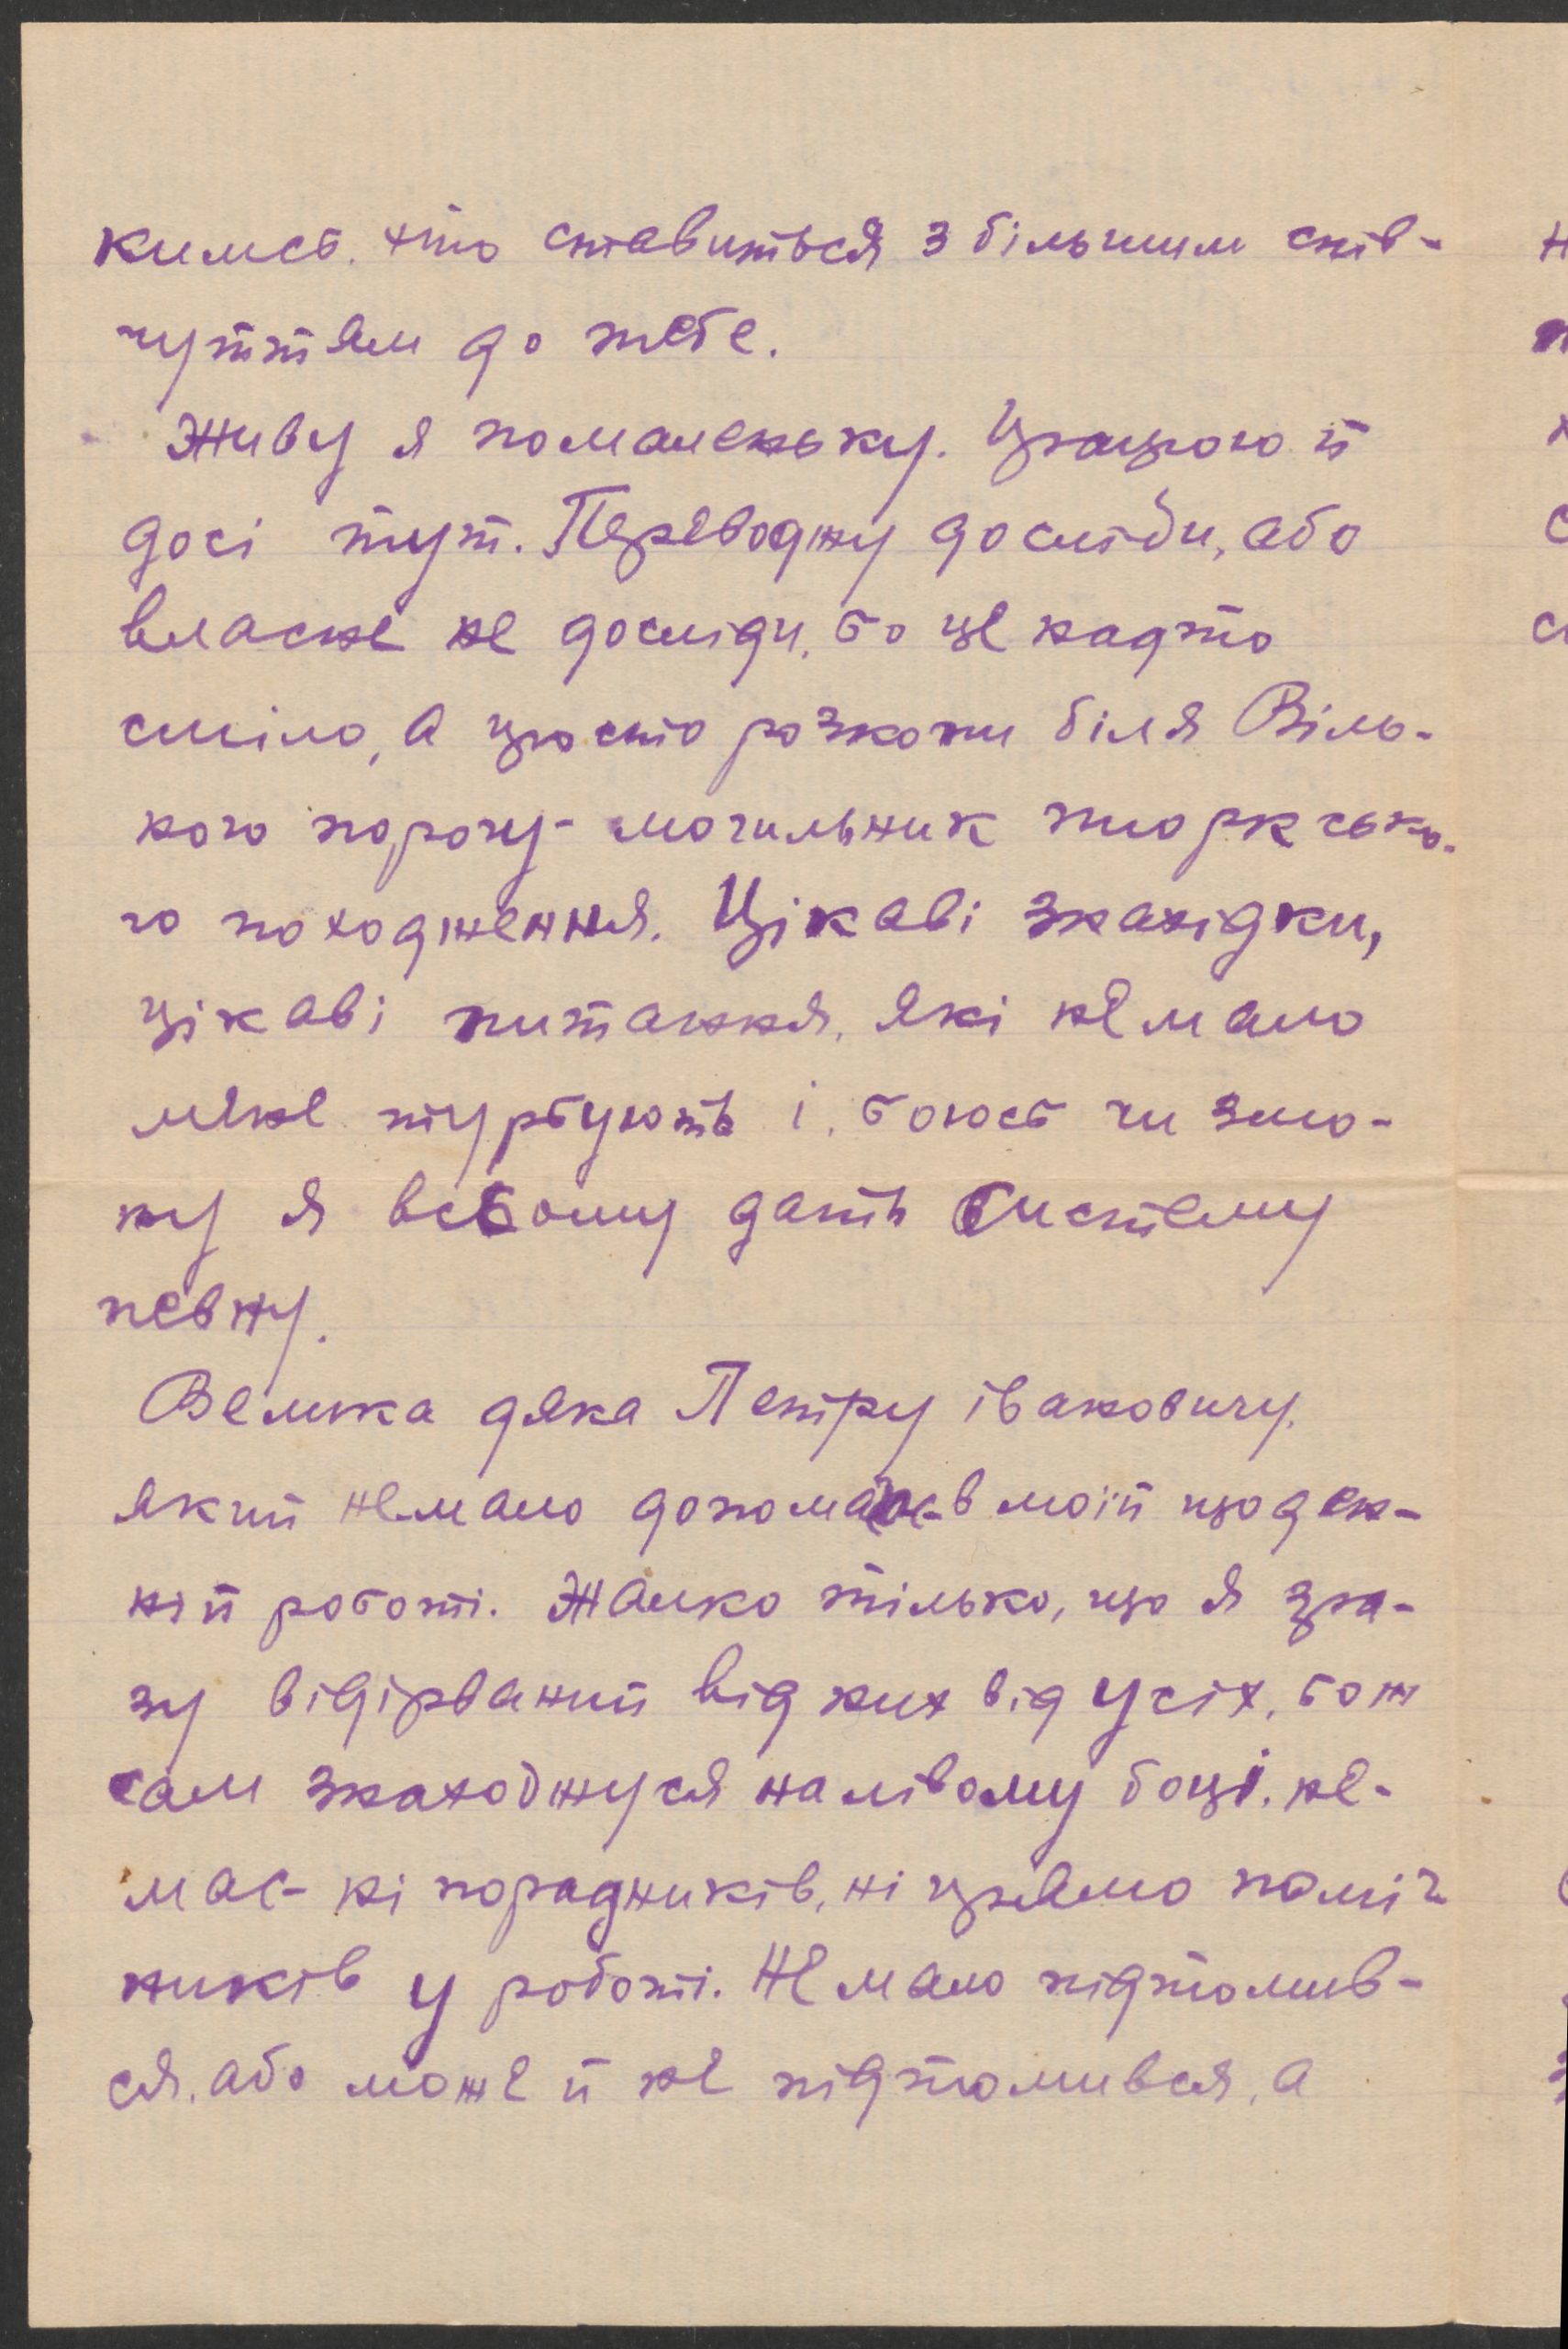 кимсь. хто ставиться з більшим спів-
чуттям до тебе.
Живу я помаленьку. Працюю й
досі тут. Переводжу досліди, або
власне не досліди, бо це надто
сміло, а просто розкопи біля Віль-
ного порогу - могильник тюрксько-
го походження. Цікаві знахідки,
цікаві питання, які немало
мене турбують і, боюсь чи змо-
жу я всьому дать систему
певну.
Велика дяка Петру Івановичу,
який немало допомагає в моїй щоден-
ній роботі. Жалко тільки, що я зра-
зу відірваний від них від усіх, бо ж
сам знаходжуся на лівому боці. не-
має ні порадників, ні прямо поміч
ників у роботі. Немало підтомив-
ся, або може й не підтомився, а